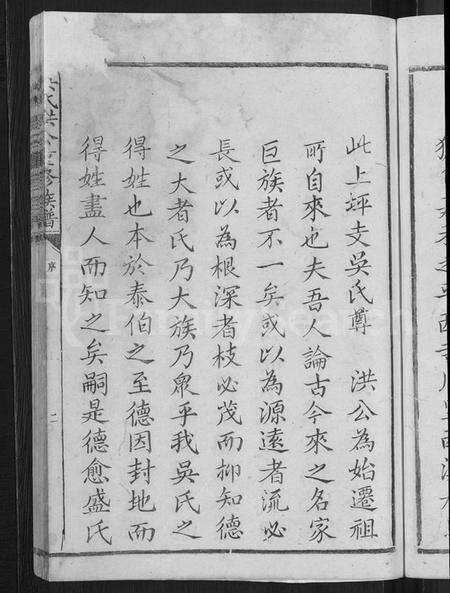 此上坪支吳氏尊　洪公為始遷祖
所自來也夫吾人論古今來之名家
巨族者不一矣或以為源遠者流必
長或以為根深者枝必茂而抑知德
之大者氏乃大族乃眾乎我吳氏之
得姓也本於泰伯之至德因封地而
得姓盡人而知之矣嗣是德愈盛氏
氏洪公重修族譜
序
二